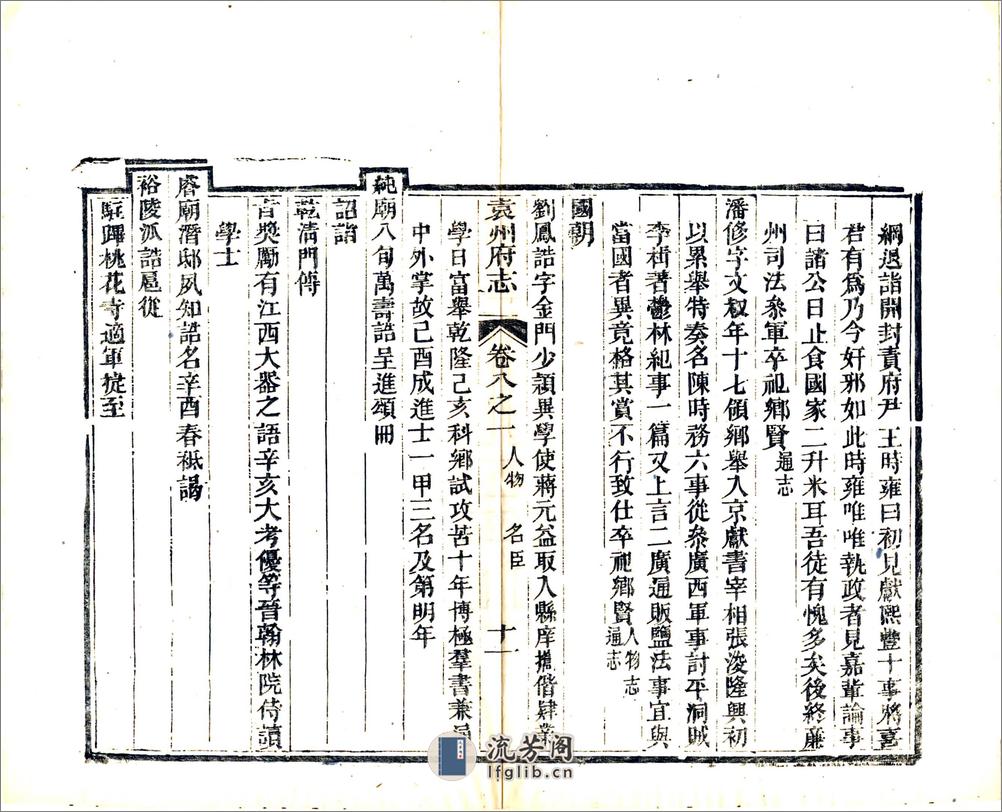 綱退詣開封責府尹王時雍曰初見獻熙豐十事將喜
君有爲乃今奸邪如此時雍唯唯執政者見嘉輩論事
曰諸公日止食國家二升米耳吾徒有愧多矣後終廉
州司法叅軍卒祀鄉賢通志
潘修字文叔年十七領鄉舉入京獻書宰相張浚隆興初
以累舉特奏名陳時務六事從叅廣西軍事討平洞賊
李楫著鬱林紀事一篇又上言二廣通販鹽法事宜與
當國者異竟格其賞不行致仕卒祀鄉賢人物志
通志
國朝
劉鳳誥字金門少頴異學使蔣元益取入縣庠擔偕肄業
袁州府志 卷八之一 人物 名臣 十一
學日富舉乾隆己亥科鄉試攻苦十年博極羣書兼
中外掌故己酉成進士一甲三名及第明年
純廟八旬萬壽誥呈進頌冊
詔誥
乾淸門傳
旨獎勵有江西大器之語辛亥大考優等晉翰林院侍讀
學士
睿廟潛邸夙知誥名辛酉春祗謁
裕陵派誥扈從
駐蹕桃花寺適軍從至
流芳阁
lfglib.cn